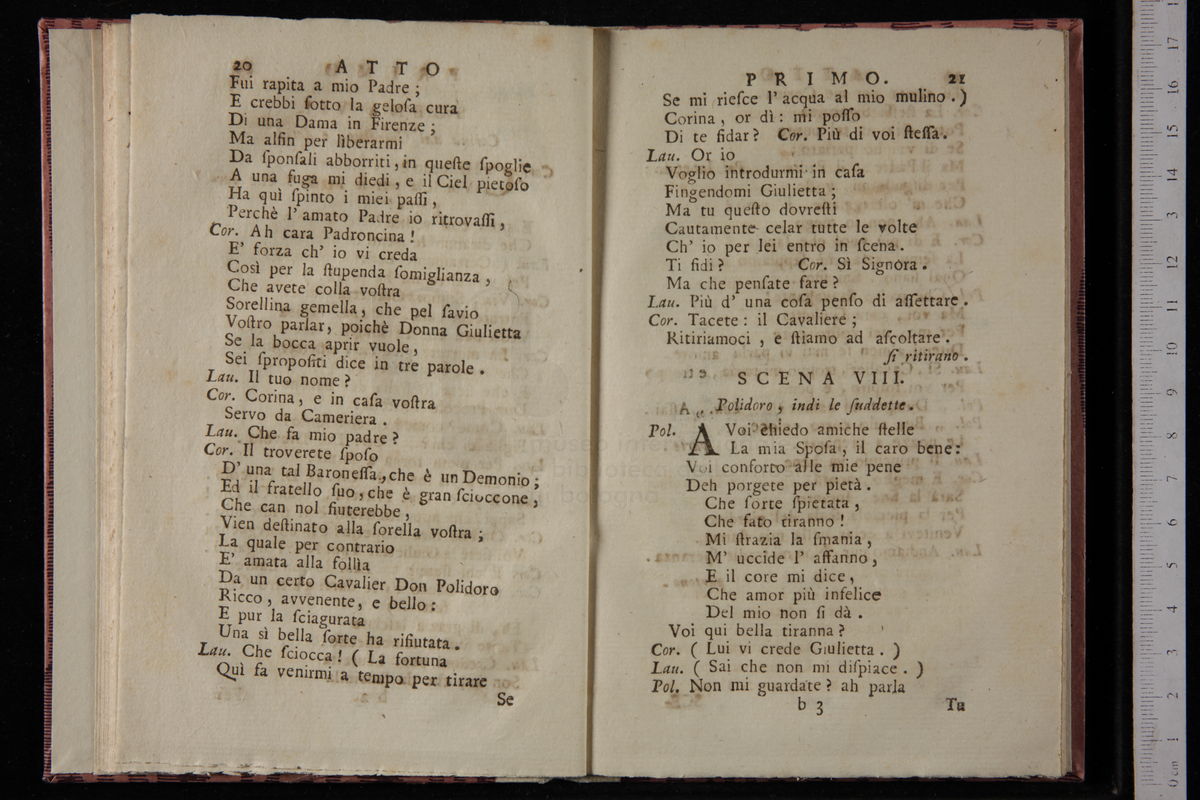 20 ATTO
Fui rapita a mio Padre ;
E crebbi ſotto la geloſa cura
Di una Dama in Firenze ;
Ma alfin per liberarmi
Da ſponſali abborriti, in queſte ſpoglie
A una fuga mi diedi, e il Ciel pietoſo
Ha quì ſpinto i miei paſſi,
Perchè l' amato Padre io ritrovaſſi,
Cor. Ah cara Padroncina !
E' forza ch' io vi creda
Così per la ſtupenda ſomiglianza,
Che avete colla voſtra
Sorellina gemella, che pel ſavio
Voſtro parlar, poichè Donna Giulietta
Se la bocca aprir vuole,
Sei ſpropoſiti dice in tre parole.
Lau. Il tuo nome ?
Cor. Corina, e in caſa voſtra
Servo da Cameriera.
Lau. Che fa mio padre ?
Cor. Il troverete ſpoſo
D' una tal Baroneſſa, che è un Demonio ;
Ed il fratello ſuo, che è gran ſcioccone,
Che can nol fiuterebbe,
Vien deſtinato alla ſorella voſtra ;
La quale per contrario
E' amata alla follìa
Da un certo Cavalier Don Polidoro
Ricco, avvenente, e bello :
E pur la ſciagurata
Una sì bella ſorte ha rifiutata.
Lau. Che ſciocca ! ( La fortuna
Quì fa venirmi a tempo per tirare
Se
PRIMO. 21
Se mi rieſce l' acqua al mio mulino. )
Corina, or dì : mi poſſo
Di te fidar ? Cor. Più di voi ſteſſa.
Lau. Or io
Voglio introdurmi in caſa
Fingendomi Giulietta ;
Ma tu queſto dovreſti
Cautamente celar tutte le volte
Ch' io per lei entro in ſcena.
Ti fidi ? Cor. Sì Signora.
Ma che penſate fare ?
Lau. Più d' una coſa penſo di aſſettare.
Cor. Tacete : il Cavaliere ;
Ritiriamoci, e ſtiamo ad aſcoltare.
ſi ritirano.
SCENA VIII.
Polidoro, indi le ſuddette.
Pol. A Voi chiedo amiche ſtelle
La mia Spoſa, il caro bene :
Voi conforto alle mie pene
Deh porgete per pietà.
Che ſorte ſpietata,
Che fato tiranno !
Mi ſtrazia la ſmania,
M' uccide l' affanno,
E il core mi dice,
Che amor più infelice
Del mio non ſi dà.
Voi qui bella tiranna ?
Cor. ( Lui vi crede Giulietta. )
Lau. ( Sai che non mi diſpiace. )
Pol. Non mi guardate ? ah parla
b 3 Tu